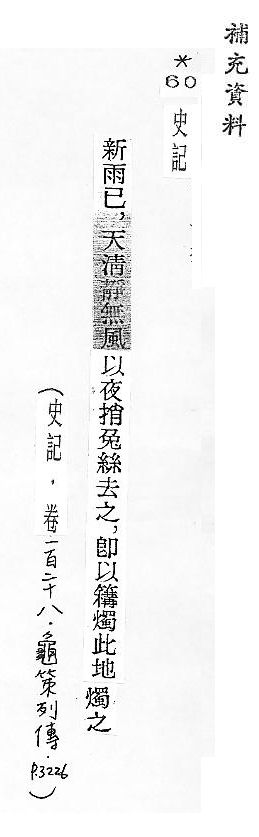 補充資料
*60
史記
新雨已，天清靜無風以夜捎兔絲去之，即以篝燭此地燭之
（史記，卷一百二十八．龜策列傳．P.3226）